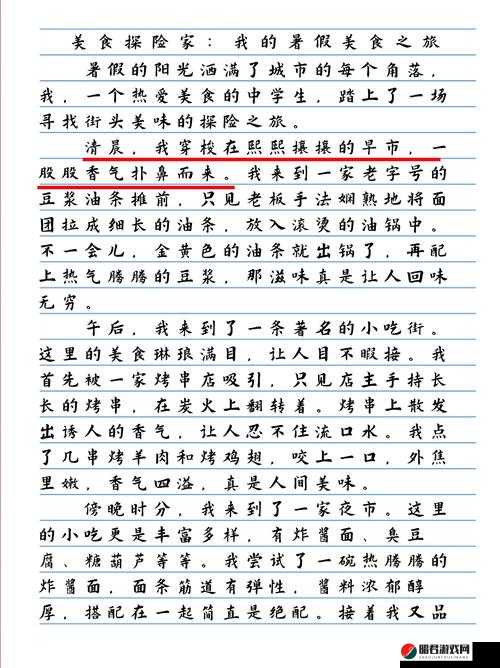 美食探险家：我的暑假美食之旅
暑假的阳光洒满了城市的每个角落，
我，一个热爱美食的中学生，踏上了一场
寻找街头美味的探险之旅。
清晨，我穿梭在熙熙攘攘的早市，一
股股香气扑鼻而来。我来到一家老字号的
豆浆油条摊前，只见老板手法娴熟地将面
团拉成细长的油条，放入滚烫的油锅中。
不一会儿，金黄色的油条就出锅了，再配
上热气腾腾的豆浆，那滋味真是让人回味
无穷。
午后，我来到了一条著名的小吃街。
这里的美食琳琅满目，让人目不暇接。我
首先被一家烤串店吸引，只见店主手持长
长的烤串，在炭火上翻转着。烤串上散发
出诱人的香气，让人忍不住流口水。我点
了几串烤羊肉和烤鸡翅，咬上一口，外焦
里嫩，香气四溢，真是人间美味。
傍晚时分，我来到了一家夜市。这里
的小吃更是丰富多样，有炸酱面、臭豆
腐、糖葫芦等等。我尝试了一碗热腾腾的
炸酱面，面条筋道有弹性，酱料浓郁醇
厚，搭配在一起简直是绝配。接着我又品
昭君游戏网